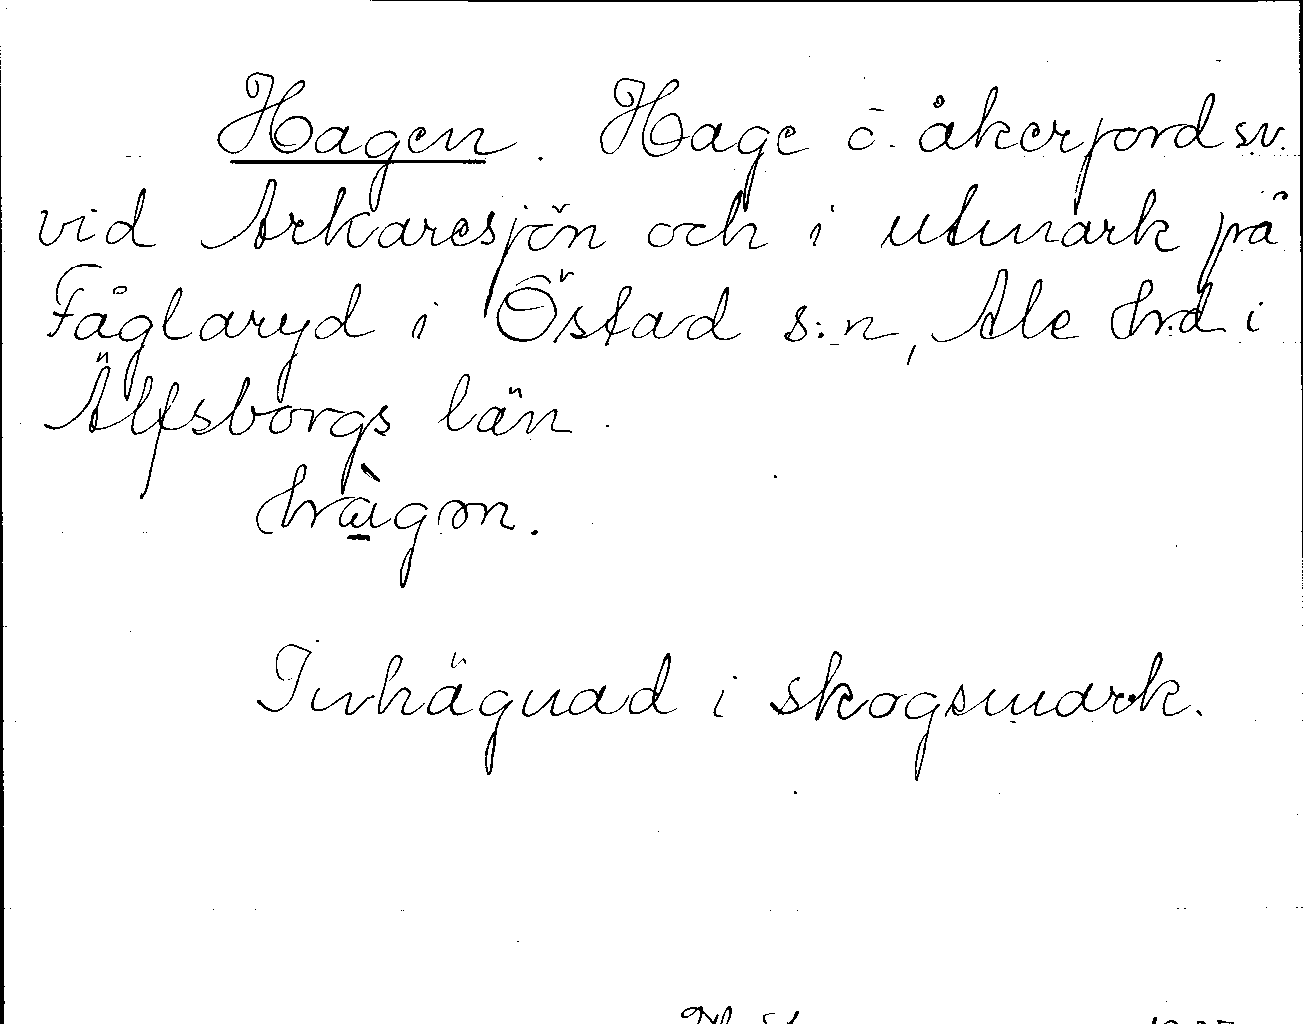 Hagen. Hage o. åkerjord sv.
vid Arkaresjön och i utmark på
Fåglaryd i Östad s:n, Ale hrd i
Älfsborgs län.
Inhägnad i skogsmark.